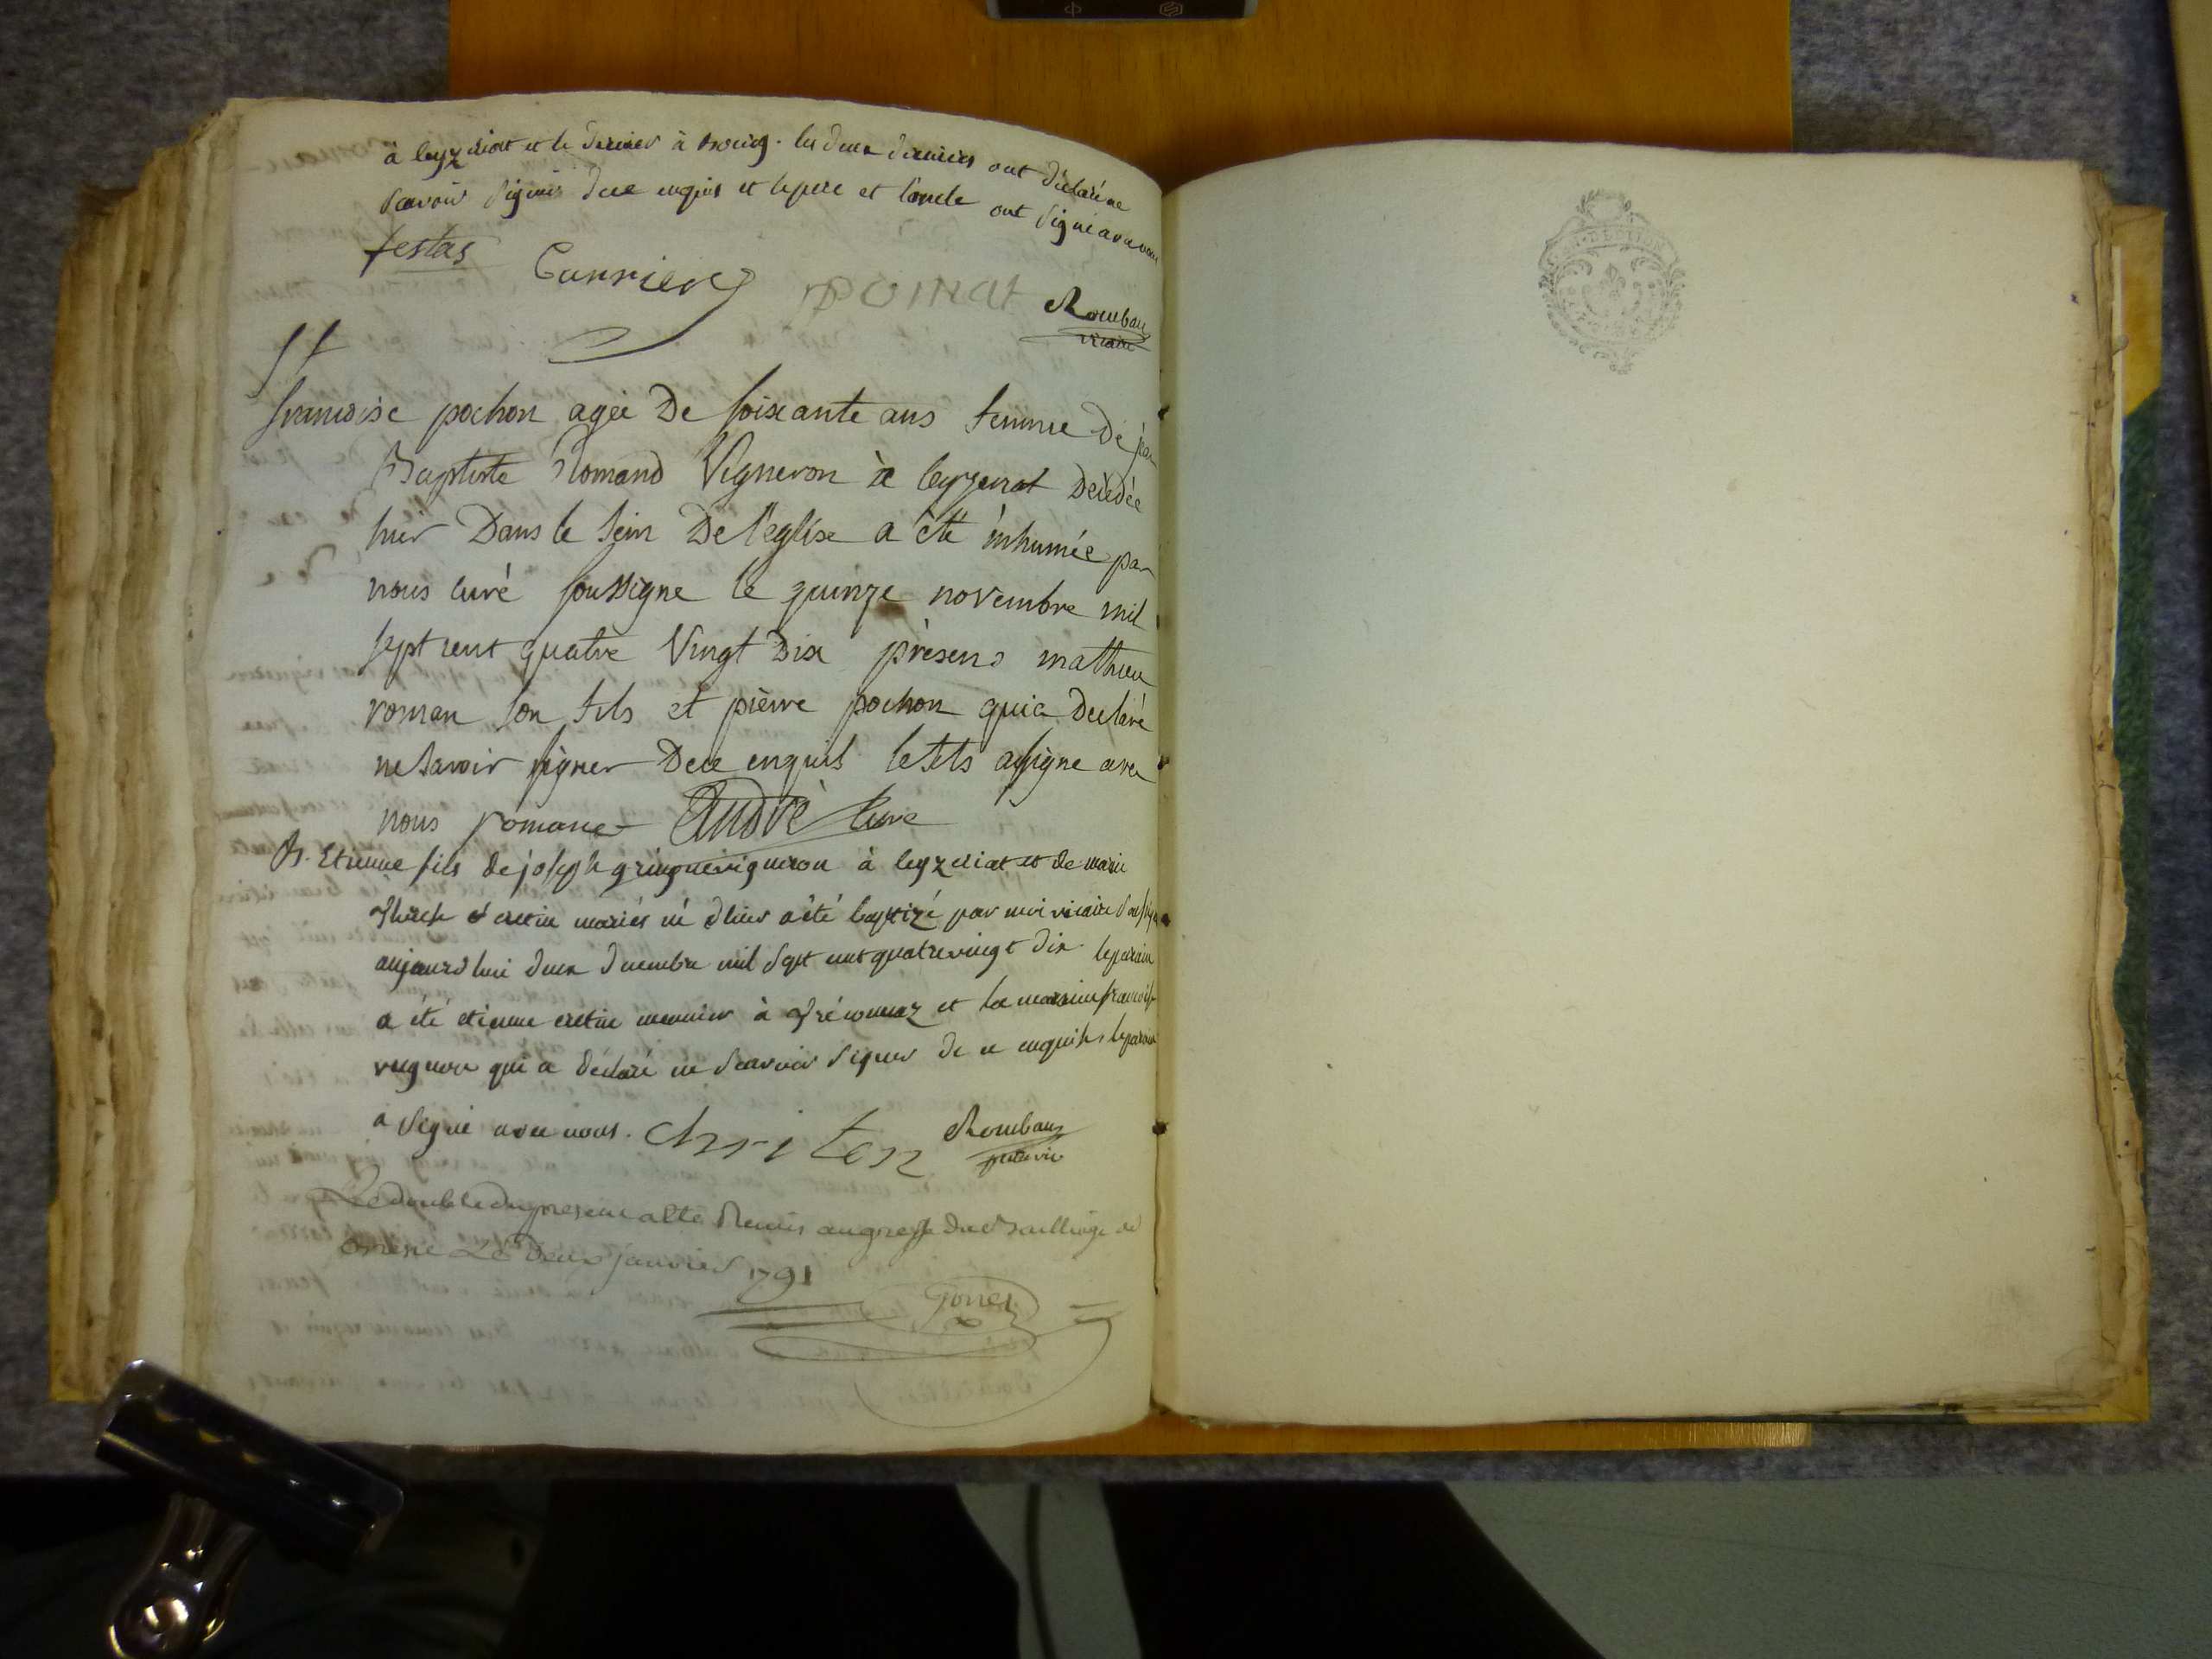 à leyzeriat et le dernier à . les deux derniers ont déclaré ne
scavoir signer de ce enquis et le pere et l'oncle ont signé avec nous
festas Carrier poinat Roubau
vicaire
francoise pochon agée De soixante ans femme De jean
Baptiste Romand Vigneron à leyzeriat Décedée
hier Dans le sein De l'eglise a été inhumée par
nous curé soussigne le quinze novembre mil
sept cent quatre Vingt Dix présens mathieu
roman son fils et pièrre pochon qui a Declaré
ne savoir signer De ce enquis le fils a signe avec
nous romane André Curé
B. Etienne fils de joseph vigneron à leyzeriat et de marie
cretin mariés né d'hier a été baptizé par moi vicaire soussigné
aujourd'hui deux decembre mil sept cent quatrevingt dix le parain
a été etienne cretin meunier à et la maraine francoise
qui a déclaré ne scavoir signer de ce enquise, le parain
a signé avec nous. chriten Roubau
Le double du present a été Remis au greffe du Bailliage de
Le Deux janvier 1791